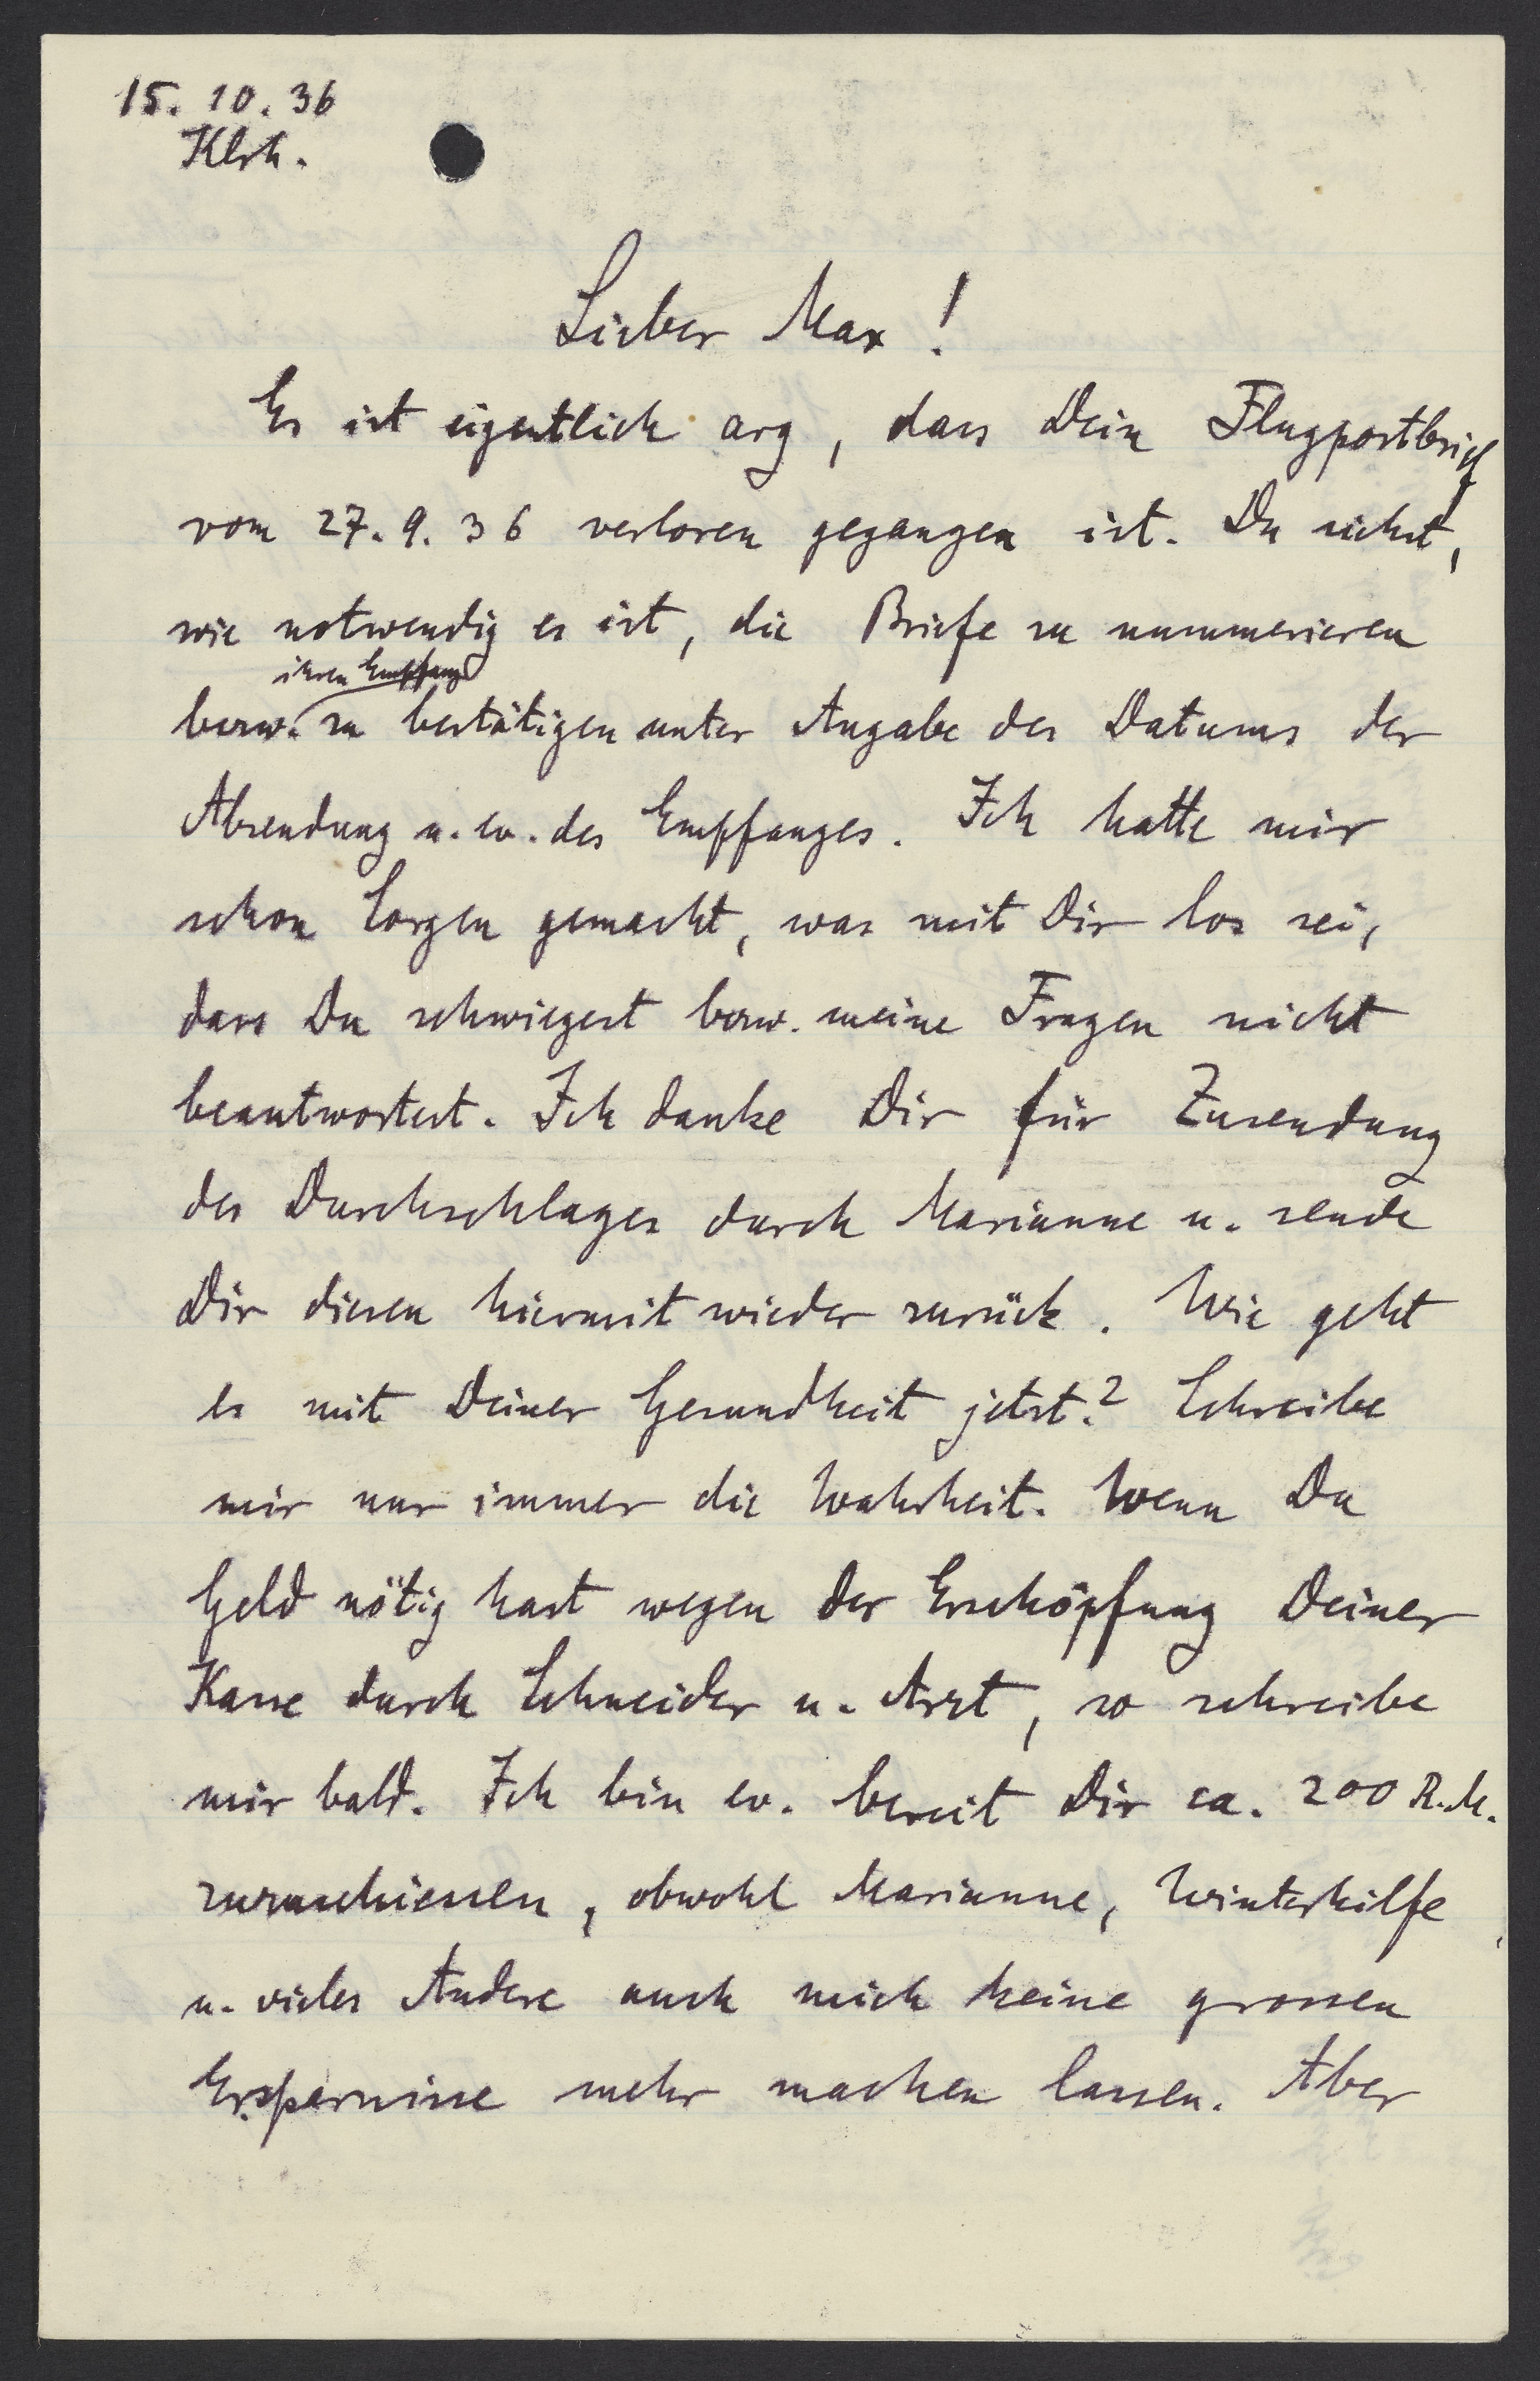 15. 10. 36
Klrh.
Lieber Max !
Es ist eigentlich arg, dass Dein Flugpostbrief
vom 27. 9. 36 verloren gegangen ist. Du siehst,
wie notwendig es ist, die Briefe zu nummerieren
ihren Empfang
bezw. zu bestätigen unter Angabe des Datums der
Absendung u. ev. des Empfanges. Ich hatte mir
schon Sorgen gemacht, was mit Dir los sei,
dass Du schwiegest bezw. meine Fragen nicht
beantwortest. Ich danke Dir für Zusendung
des Durchschlages durch Marianne u. sende
Dir diesen hiermit wieder zurück. Wie geht
es mit Deiner Gesundheit jetzt? Schreibe
mir nur immer die Wahrheit. Wenn Du
Geld nötig hast wegen der Erschöpfung Deiner
Kasse durch Schneider u. Arzt, so schreibe
mir bald. Ich bin ev. bereit Dir ca. 200 R.M.
zuzuschiessen, obwohl Marianne, Winterhilfe
u. vieles Andere auch mich keine grossen
Ersparnisse mehr machen lassen. Aber